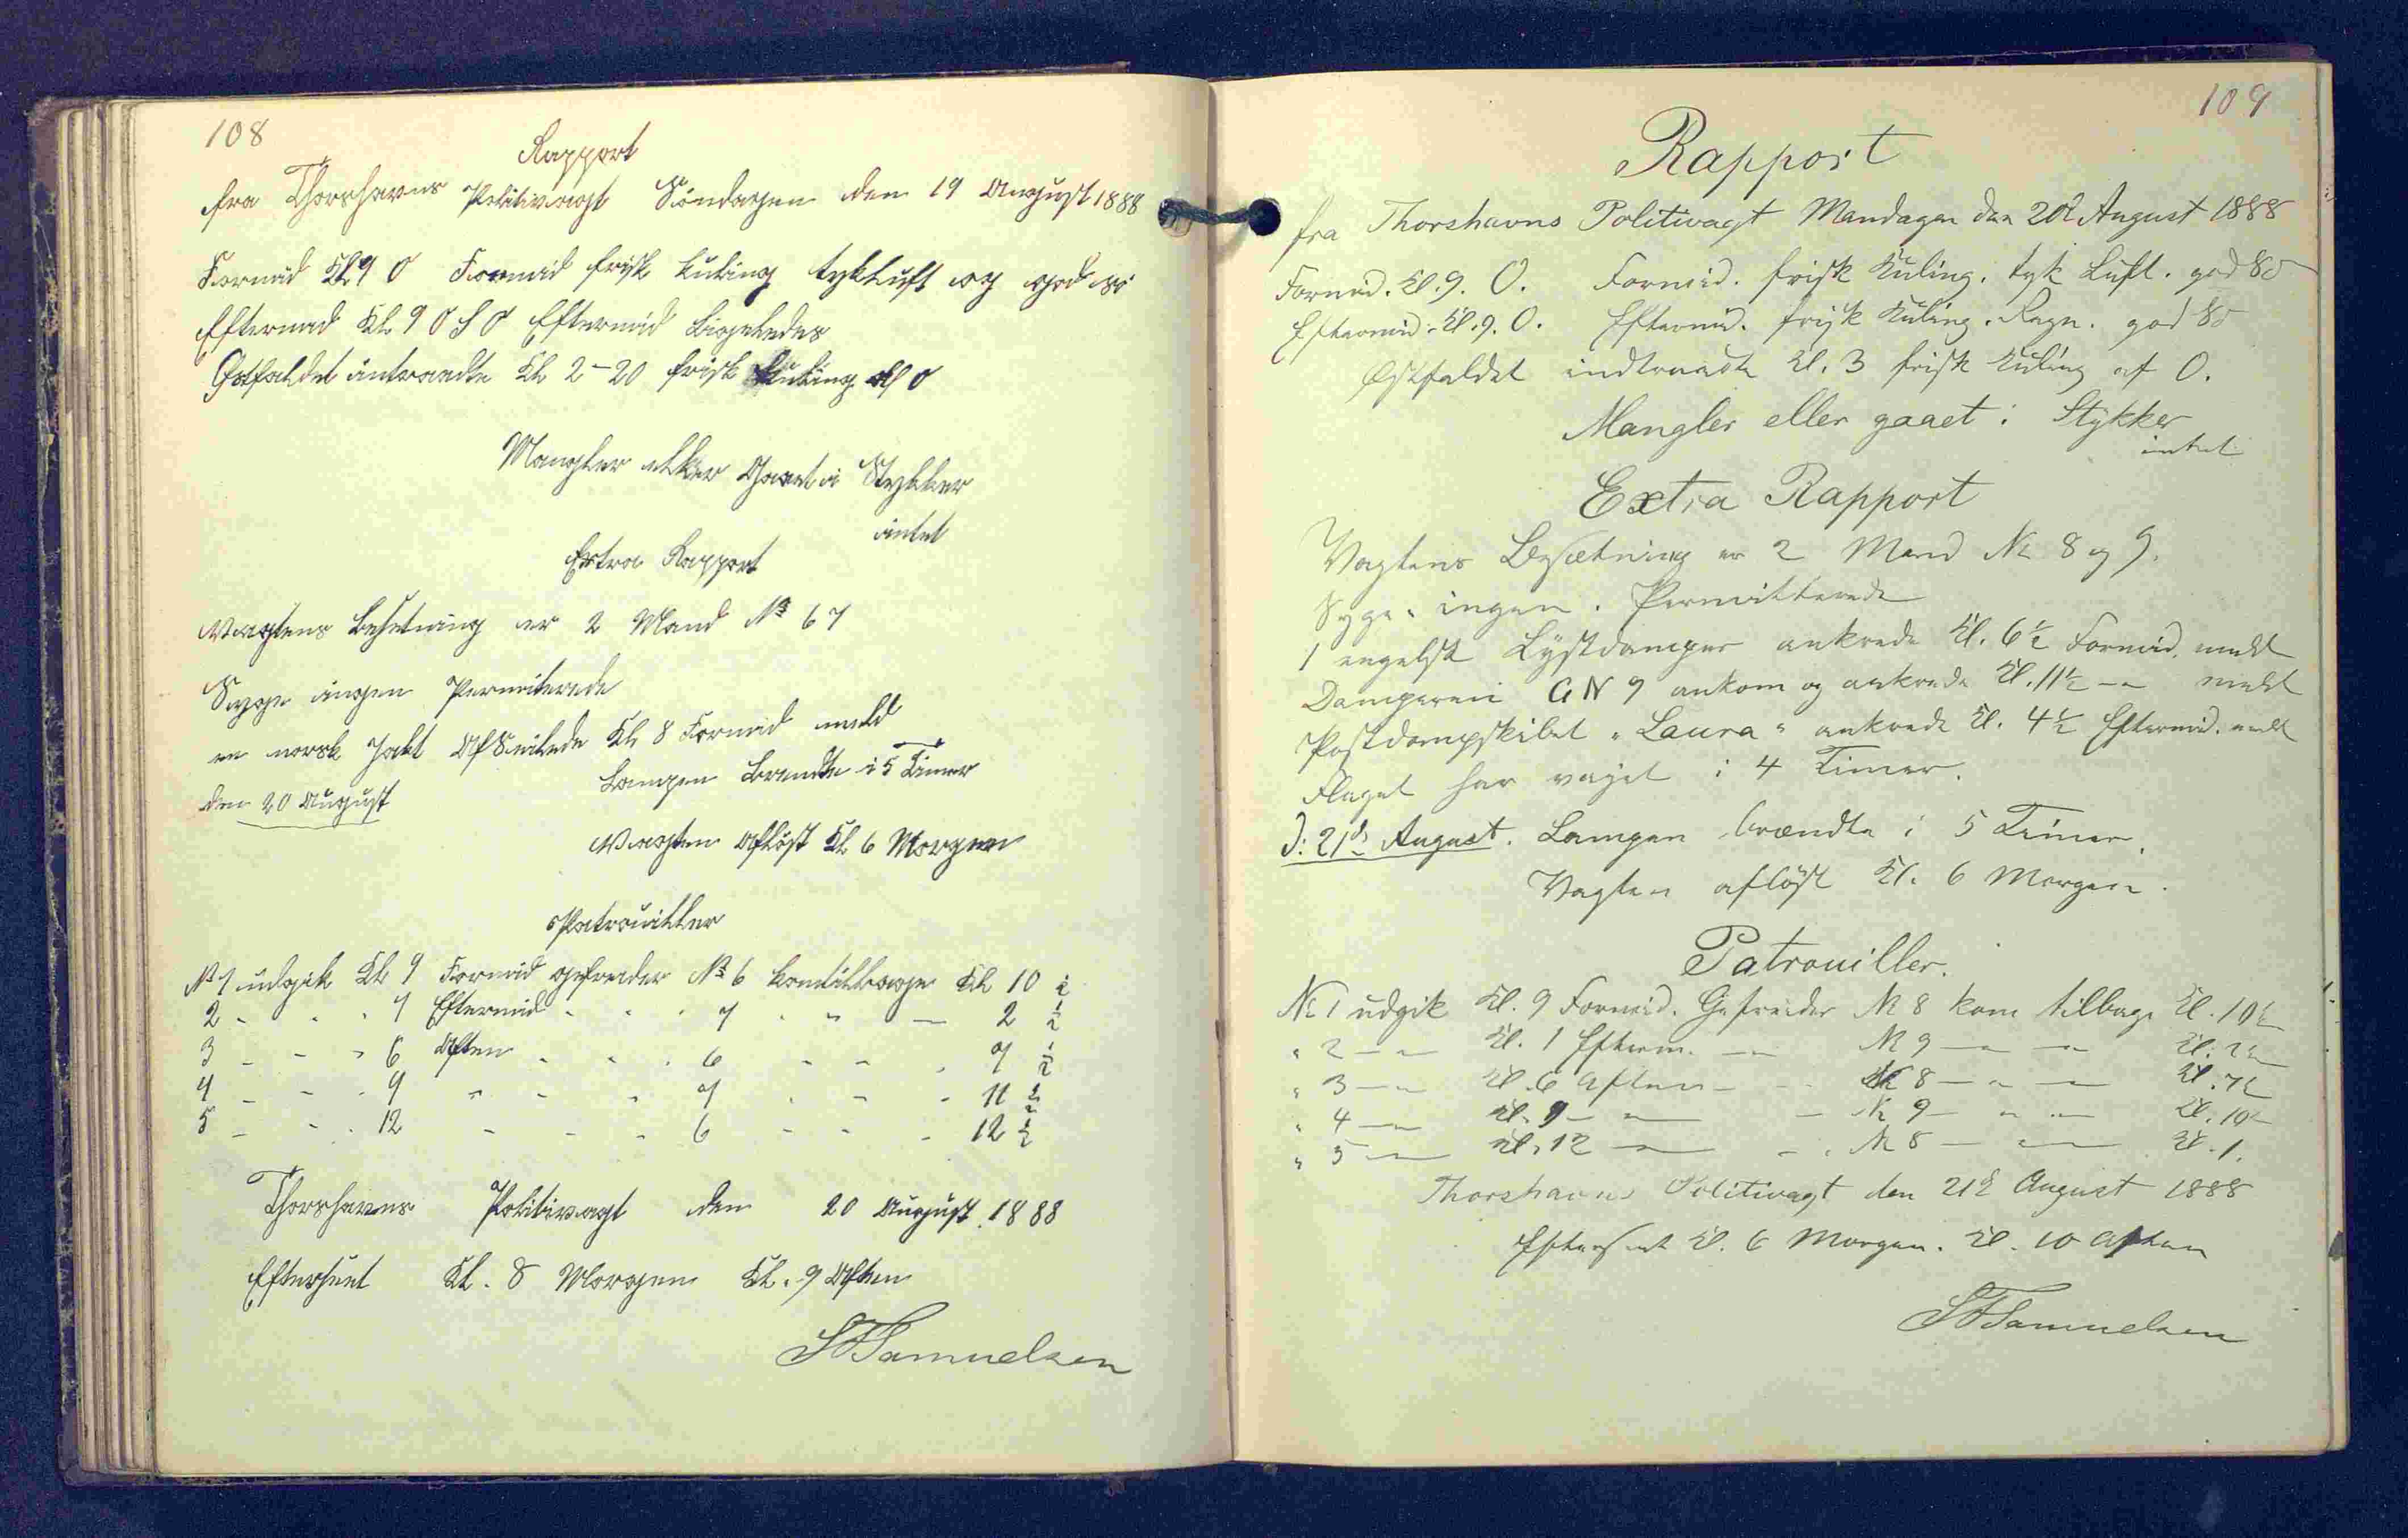 108
Rapport
fra Thorshavns Politivagt Söndagen den 19 August 1888
Formid Kl 9 O Formid frisk Kuling tyk Luft og god sö
Eftermid Kl. 9 O S O Eftermid Ligeledes
Östfaldet intraadte Kl 2-20 frisk Kuling af O
Mangler eller Gaaet i Stykker
intet
Extra Rapport
Vagtens Besetning er 2 Mand № 6 7
Syge ingen Permiterede
en norsk Jakt Afseilede Kl 8 Formid meld
Lampen Brendte i 5 Timer
den 20 August
Vagten Aflöst Kl. 6 Morgen
Patrouiller
№ 1 udgik Kl 9 Formid gefreider № 6 komtilbage Kl 10 ½
2 - - - 1 Eftermid - - - 7 - - - 2 ½
3 - - - 6 Aften - - - 6 - - - 7 ½
4 - - - 9 - - - 7 - - - 11 ½
5 - - - 12 - - - 6 - - - 12 ½
Thorshavns Politivagt den 20 August. 1888
Efterseet Kl. 8 Morgen Kl. 9 Aften
Samuelsen
109
Rapport
fra Thorshavns Politivagt Mandagen den 20d August 1888
Formid. Kl. 9. O. Formid. frisk Kuling. tyk Luft. god Sö
Eftermid. Kl. 9. O. Eftermid. frisk Kuling. Regn. god Sö
Østfaldet indtraadte Kl. 3 frisk Kuling af O.
Mangler eller gaaet i Stykker
intet
Extra Rapport
Vagtens Besætning er 2 Mand № 8 og 9.
Syge. ingen. Permitterede
1 engelsk Lystdamper ankrede Kl. 6½ Formid. meldt
Damperen GN 9 ankom og ankrede Kl. 11½ -"- meldt
Postdampskibet "Laura" ankrede Kl. 4½ Eftermid. meldt
Flaget har vajet i 4 Timer.
D: 21d August. Lampen brændte i 5 Timer.
Vagten aflöst Kl. 6 Morgen.
Patrouiller.
№ 1 udgik Kl. 9 Formid. Gefreider № 8 kom tilbage Kl. 10½
" 2 -"- Kl. 1 Efterm. -"- № 9 -"- -"- Kl. 2½
" 3 -"- Kl. 6 Aften - - № 8 -"- -"- Kl. 7½
" 4 -"- Kl. 9 -"- - № 9 -"- -"- Kl. 10½
" 5 -"- Kl. 12 -"- - № 8 -"- -"- Kl. 1.
Thorshavns Politivagt den 21d August 1888
Efterseet Kl. 6 Morgen. Kl. 10 Aften
Samuelsen